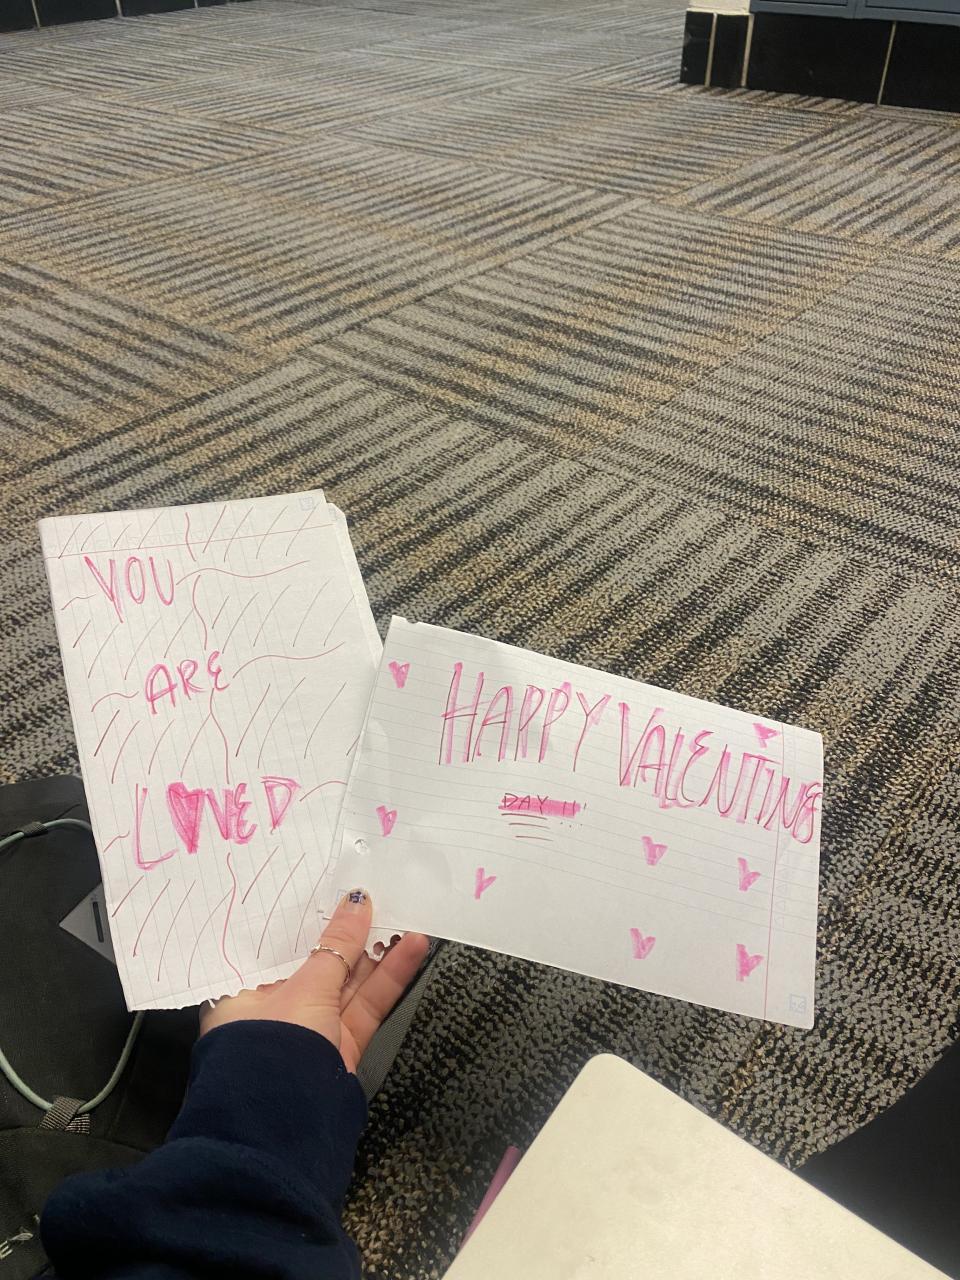 YOU
ARE
LOVED
HAPPY VALENTINE
DAY !!!